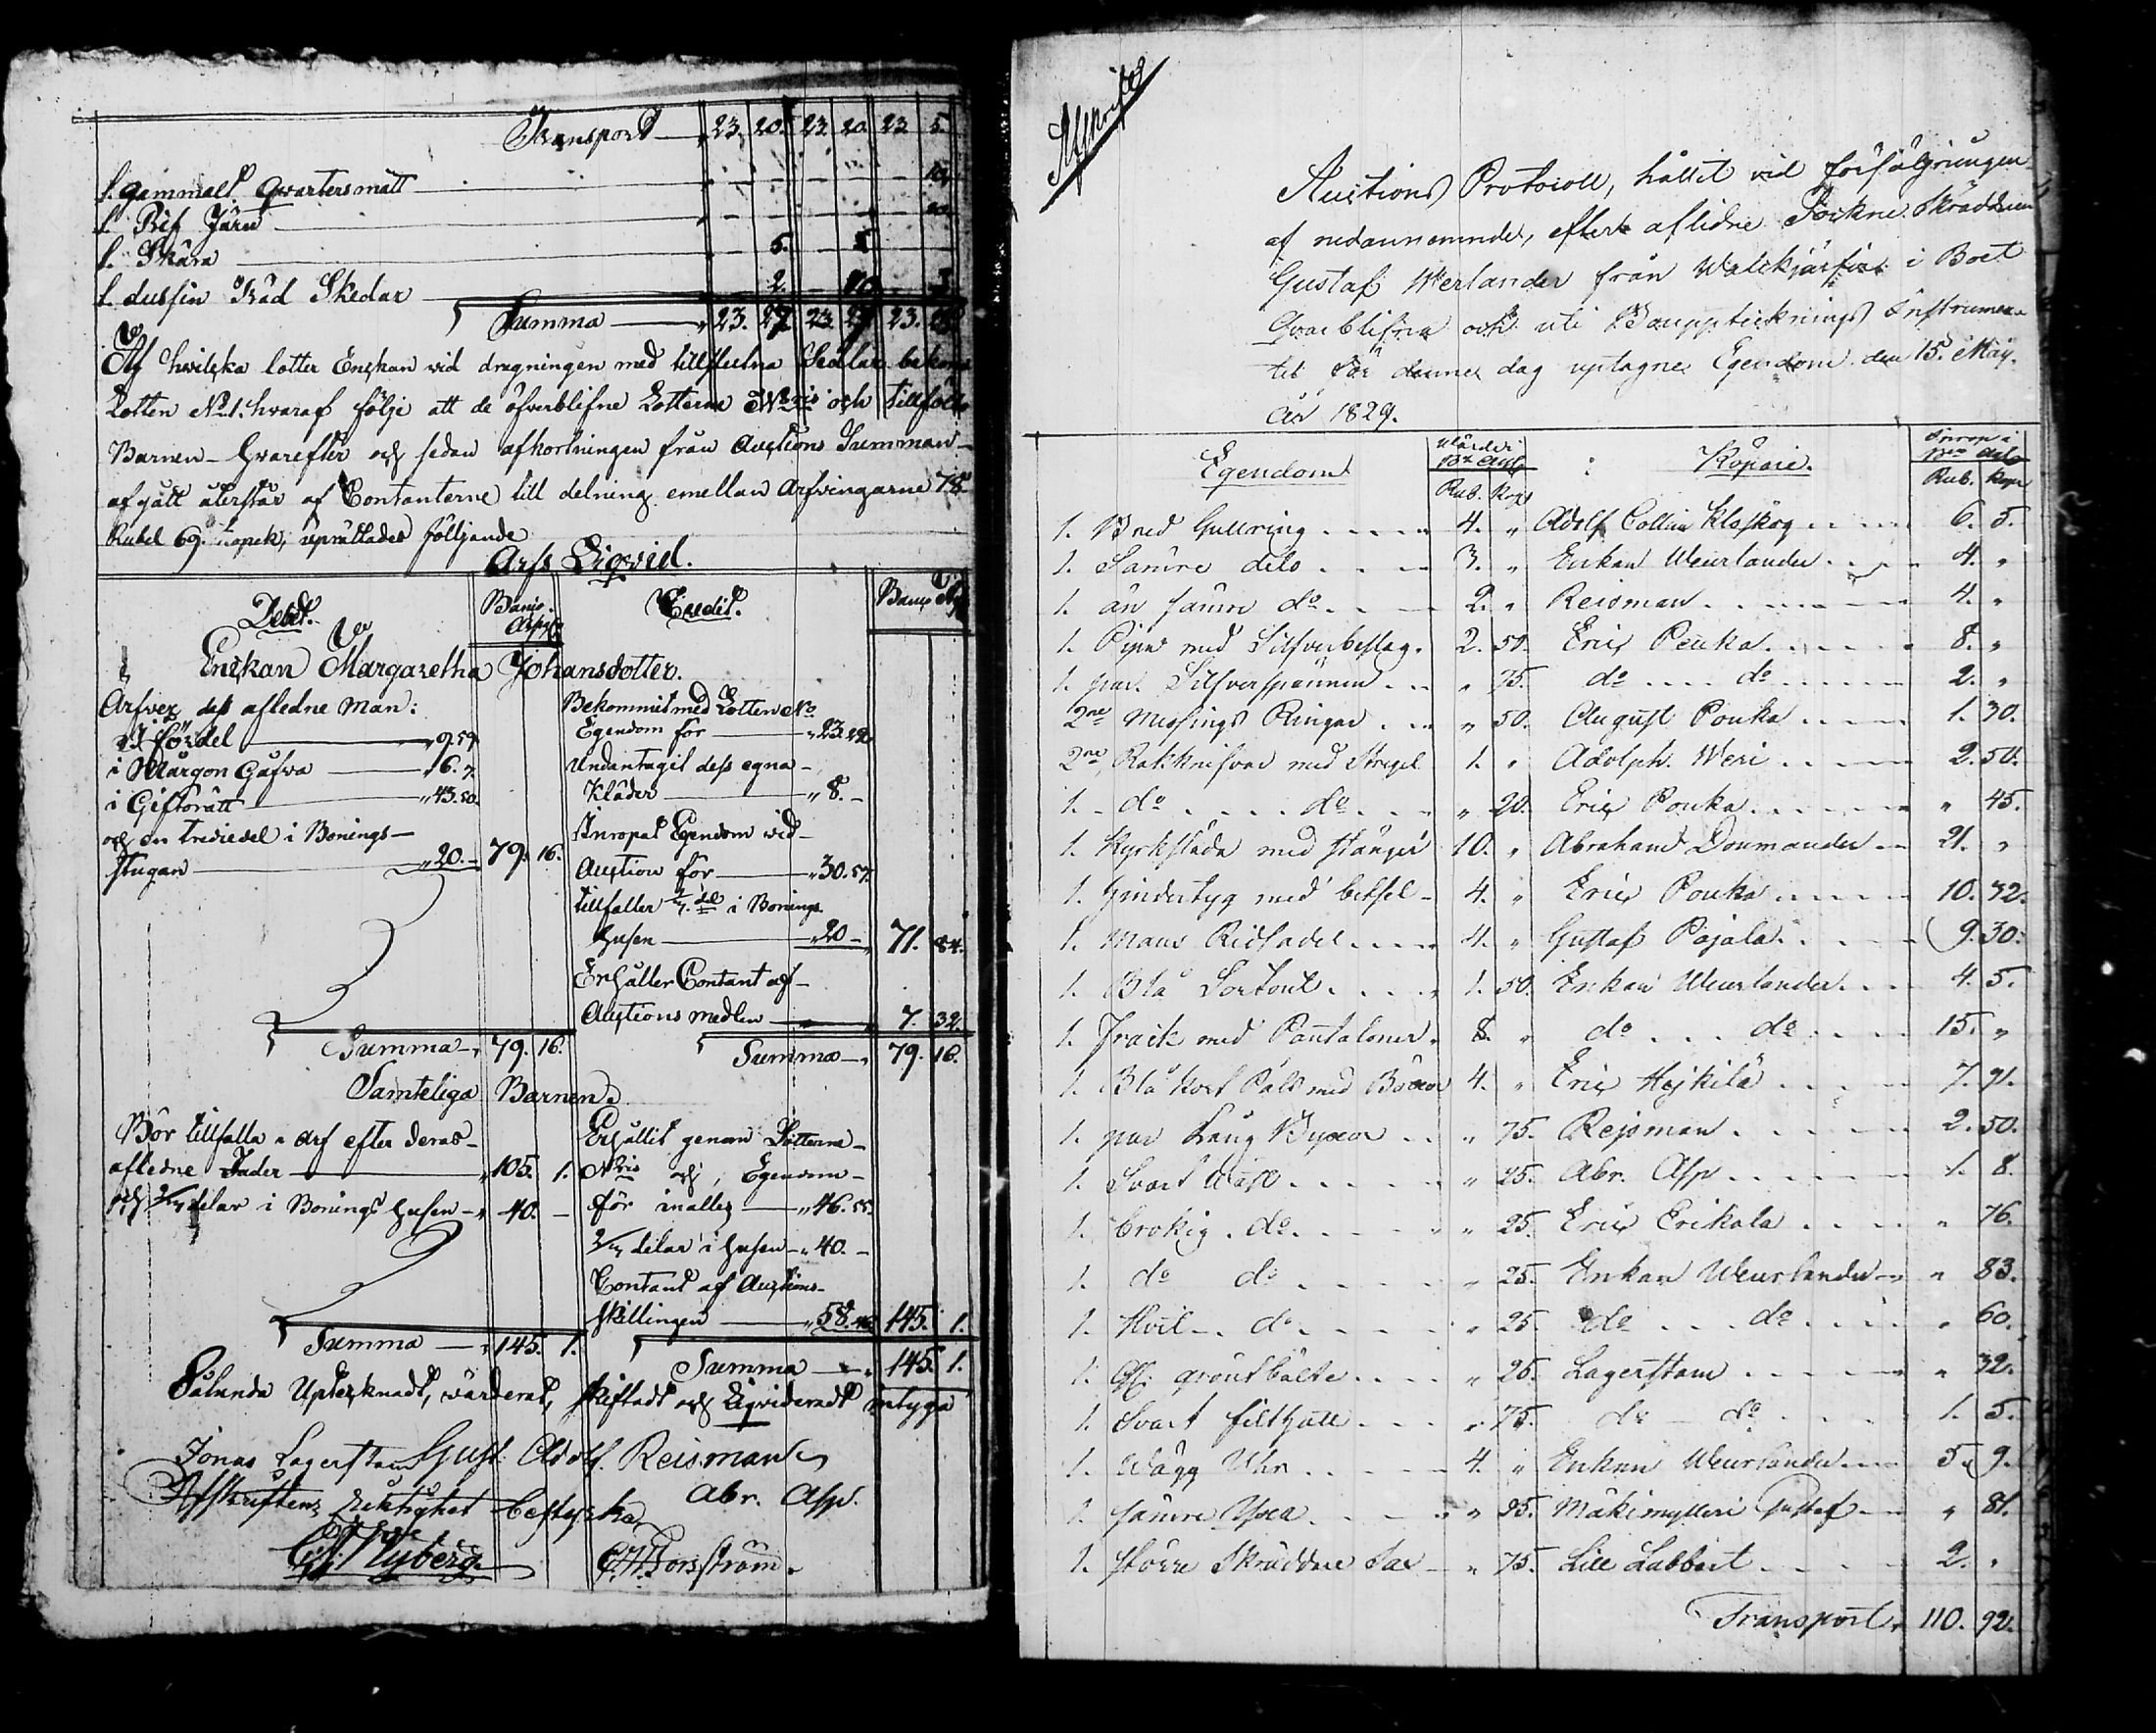 Transport 23. 20. 23 20. 23 5.
1. gammalt Qvartersmått — — — — — 10.
1. Rif Järn — — — — — 10.
1. Skära — 5. — 5
1. dussin Träd Skedar — 2. — 10
Summa — 23. 27. 23. 23.
Af hvilka lotter Enckan vid dragningen med tillslutna Sedlar bekom
Lotten No 1. hvaraf följe att de öfverblifne Lotterne Nris och tillföllo
Barnen – hvarefter och sedan afkortningen från Auctions Summan
afgått återstår af Contanterne till delning emellan Arfvingarne 78
Rubel 69. kopek, uprättades följande
Arfs Liqvid.
Debet. Banco Assg. Credit. Banco
Enckan Margaretha Johansdotter.
Arfver dess afledne Man:
i fördel — 9. 59
i Morgon Gåfva — 6. 7.
i Giftorätt — 43. 50.
och en trediedel i Bonings-
stugan — 20. – 79. 16.
Bekommit med Lotten No
Egendom för — 23. 22.
Undantagit dess egna –
Kläder — 8. –
Inropat Egendom vid –
Auction för — 30. 57.
tillfaller del i Bonings
husen — 20 – 71. 84.
Erhåller Contant af –
Auctions medlen — 7. 32.
Summa — 79. 16. Summa — 79. 16.
Samteliga Barnen.
Bör tillfalla i arf efter deras –
afledne Fader — 105. 1.
och delar i Bonings husen — 40. –
Erhållit genom Lotterne –
Nris och, Egendom –
för inalles — 46. 55.
delar i husen — 40. –
Contant af Auctions-
skillingen — 58. 145. 1.
Summa — 145. 1. Summa — 145. 1.
Sålunda Uptecknadt, värderat, skiftadt och Liqvideradt intyga
Jonas Lagerstam Gust. Adolf Reisman
Abr. Asp.
Afskriftens Riktighet bestyrka
Nyberg. Forsström.
Afskrift
Auctions Protocoll, hållit vid försäljningen
af nedannemnde, efter aflidne Sockne Skräddaren
Gustaf Werlander från Walckjärfvi i Boet
Qvarblifna och uti Bouppteknings Instrumen-
tet för denne dag uptagne Egendom den 15. Maij.
År 1829.
Egendom Värde i Bco Assg Köpare. Inrop i Bco Assg
Rub. Kop Rub. Kop
1. Bred Gullring 4. " Adolf Collin Kloskog 6. 5.
1. Samre dito 3. " Enkan Weurlander 4. "
1. än samre do 2. " Reisman 4. "
1. Pipa med Silfverbeslag. 2. 50. Eric Pouka 8. "
1. par. Silfverspännen " 75. do do 2. "
2ne Messings Ringar " 50. August Pouka 1. 30.
2ne Rakknifvar med Strigel 1. " Adolph. Weri 2. 50.
1. do do " 20. Eric Pouka " 45.
1. Kyrksläda med stänger 10. " Abraham Donmander 21. "
1. hindertyg med betsel 4. " Eric Pouka 10. 32.
1. Mans Ridsadel 4. " Gustaf Pajala 9. 30.
1. Blå Sortout 1. 50. Enkan Weurlander 4. 5.
1. Frack med Pantaloner 8. " do do 15. "
1. Blå Kort Päls med Böxor 4. " Eric Hejkilä 7. 91.
1. par Lång Byxor " 75. Rejsman 2. 50.
1. Svart Wäst " 25. Abr. Asp 1. 8.
1. brokig do " 25. Eric Erikala " 76.
1. do do " 25. Enkan Weurlander " 83.
1. Hvit do " 25. do do " 60.
1. grönt bälte " 25. Lagerstam " 32.
1. Svart filthatt " 75. do do 1. 5.
1. Wägg Uhr 4. " Enkan Weurlander 5. 9.
1. Samre Yxa " 25. Mäkimylleri Gustaf " 81.
1. större Skräddare Sax " 75. Lill Labbart 2. "
Transport. 110. 92.